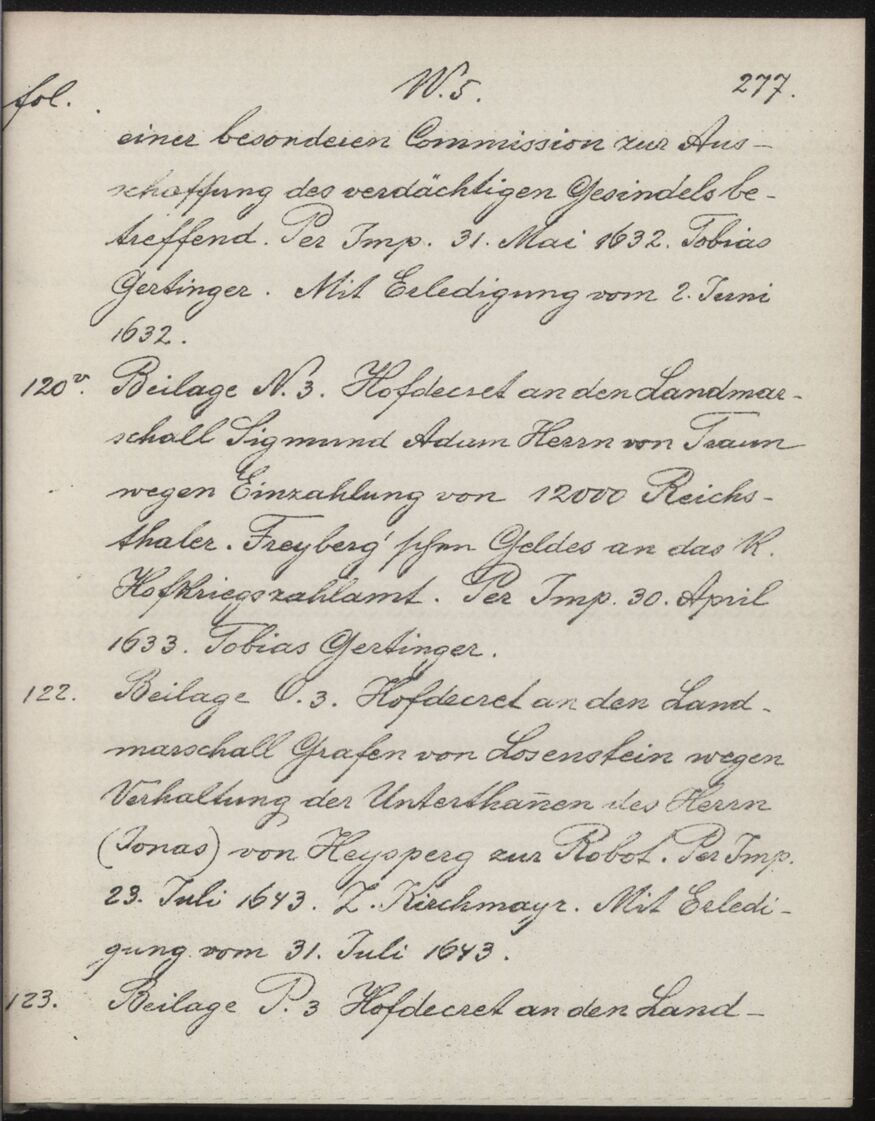 fol. W. 5. 277.
einer besonderen Commission zur Aus-
schaffung des verdächtigen Gesindels be-
treffend. Per Imp. 31. Mai 1632. Tobias
Gertinger. Mit Erledigung vom 2. Juni
1632.
120v. Beilage N. 3. Hofdecret an den Landmar-
schall Sigmund Adam Herrn von Traun
wegen Einzahlung von 12000 Reichs-
thaler. Freyberg'schen Geldes an das K.
Hofkriegszahlamt. Per Imp. 30. April
1633. Tobias Gertinger.
122. Beilage O. 3. Hofdecret an den Land-
marschall Grafen von Losenstein wegen
Verhaltung der Unterthan̄en des Herrn
(Jonas) von Heysperg zur Robot. Per Imp.
23. Juli 1643. Z. Kirchmayr. Mit Erledi-
gung vom 31. Juli 1643.
123. Beilage P. 3 Hofdecret an den Land-